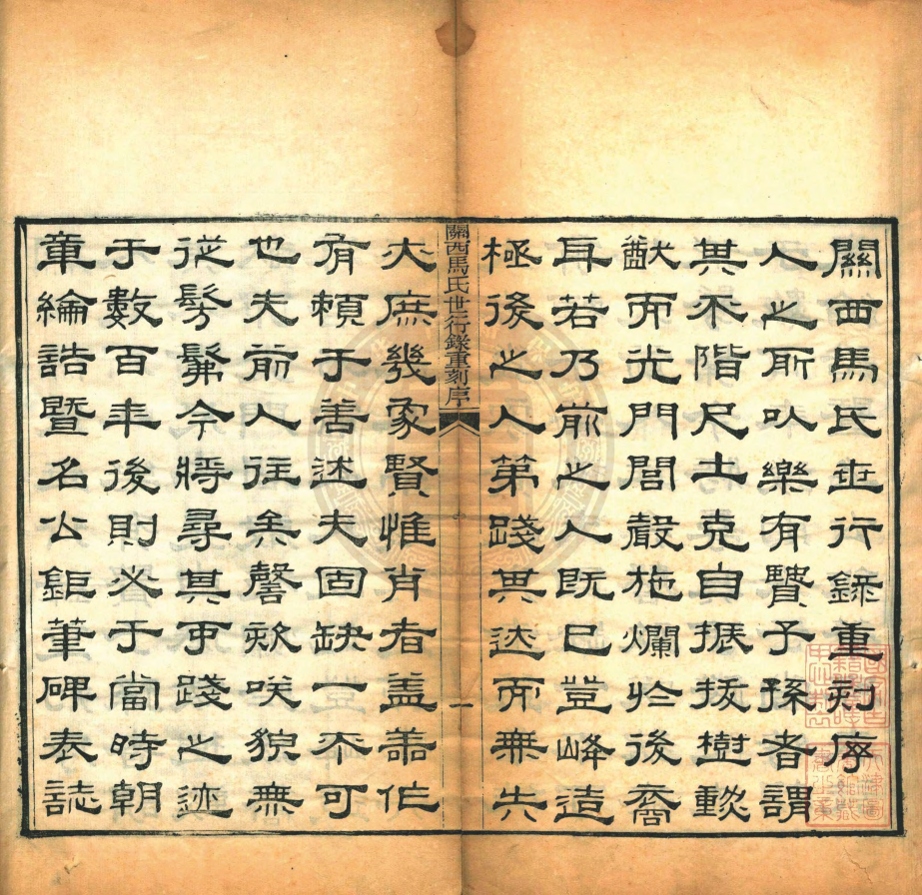 關西馬氏世行錄重刻序
人之所以樂有賢子孫者謂
其不階尺土克自振拔樹勳
猷而光門閭聲施爛於後裔
耳若乃前之人既已登峰造
極後之人第踐其迹而無失
關西馬氏世行錄重刻序
一
大庶幾象賢惟肖者蓋美作
有賴于善述夫固缺一不可
也夫前人往矣謦欬咲貌無
從髣髴今將尋其所踐之迹
于數百年後則必于當時朝
章綸誥暨名公鉅筆碑表誌